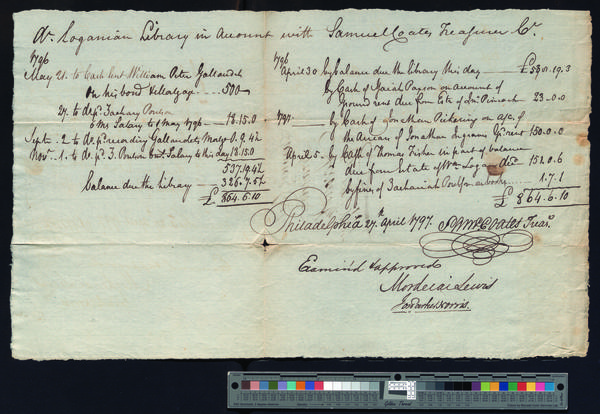 Dr. Loganian Library in Account with Samuel Coates Treasurer Cr.
1796
May 21. to Cash lent William Peter Gallaudet
on his bond & Mortgage 500
27. to do. pd. Zachary Poulson
6 Mos Salary to 1 May 1796 18.15.0
Sept. 2 to do. pd. recording Gallaudets Mortg. 0.9.4½
Novr. 1. to do. pd. Z. Poulson Salary to this day 18.15.0
537.19.4½
Balance due the Library 326.7.5½
£ 864.6.10
1796
April 30 by balance due the Library this day £ 530.19.3
by Cash of Isaiah Paxson on Account of
Ground rent due from 23.0.0
1797. by Cash of Jonathan Pickering on a/c of
the Arrears of Jonathan Ingrams Gd. rent 150.0.0
April 5. by Cash of Thomas Fisher in part of balance
due from Estate of Wm. Logan decd. 152.0.6
by fines of Zachariah Poulson 1.7.1
£ 864.6.10
Philadelphia 27th. April 1797. Saml. Coates Treasr.
Examin'd & approved
Mordecai Lewis
Jos Parker Norris.